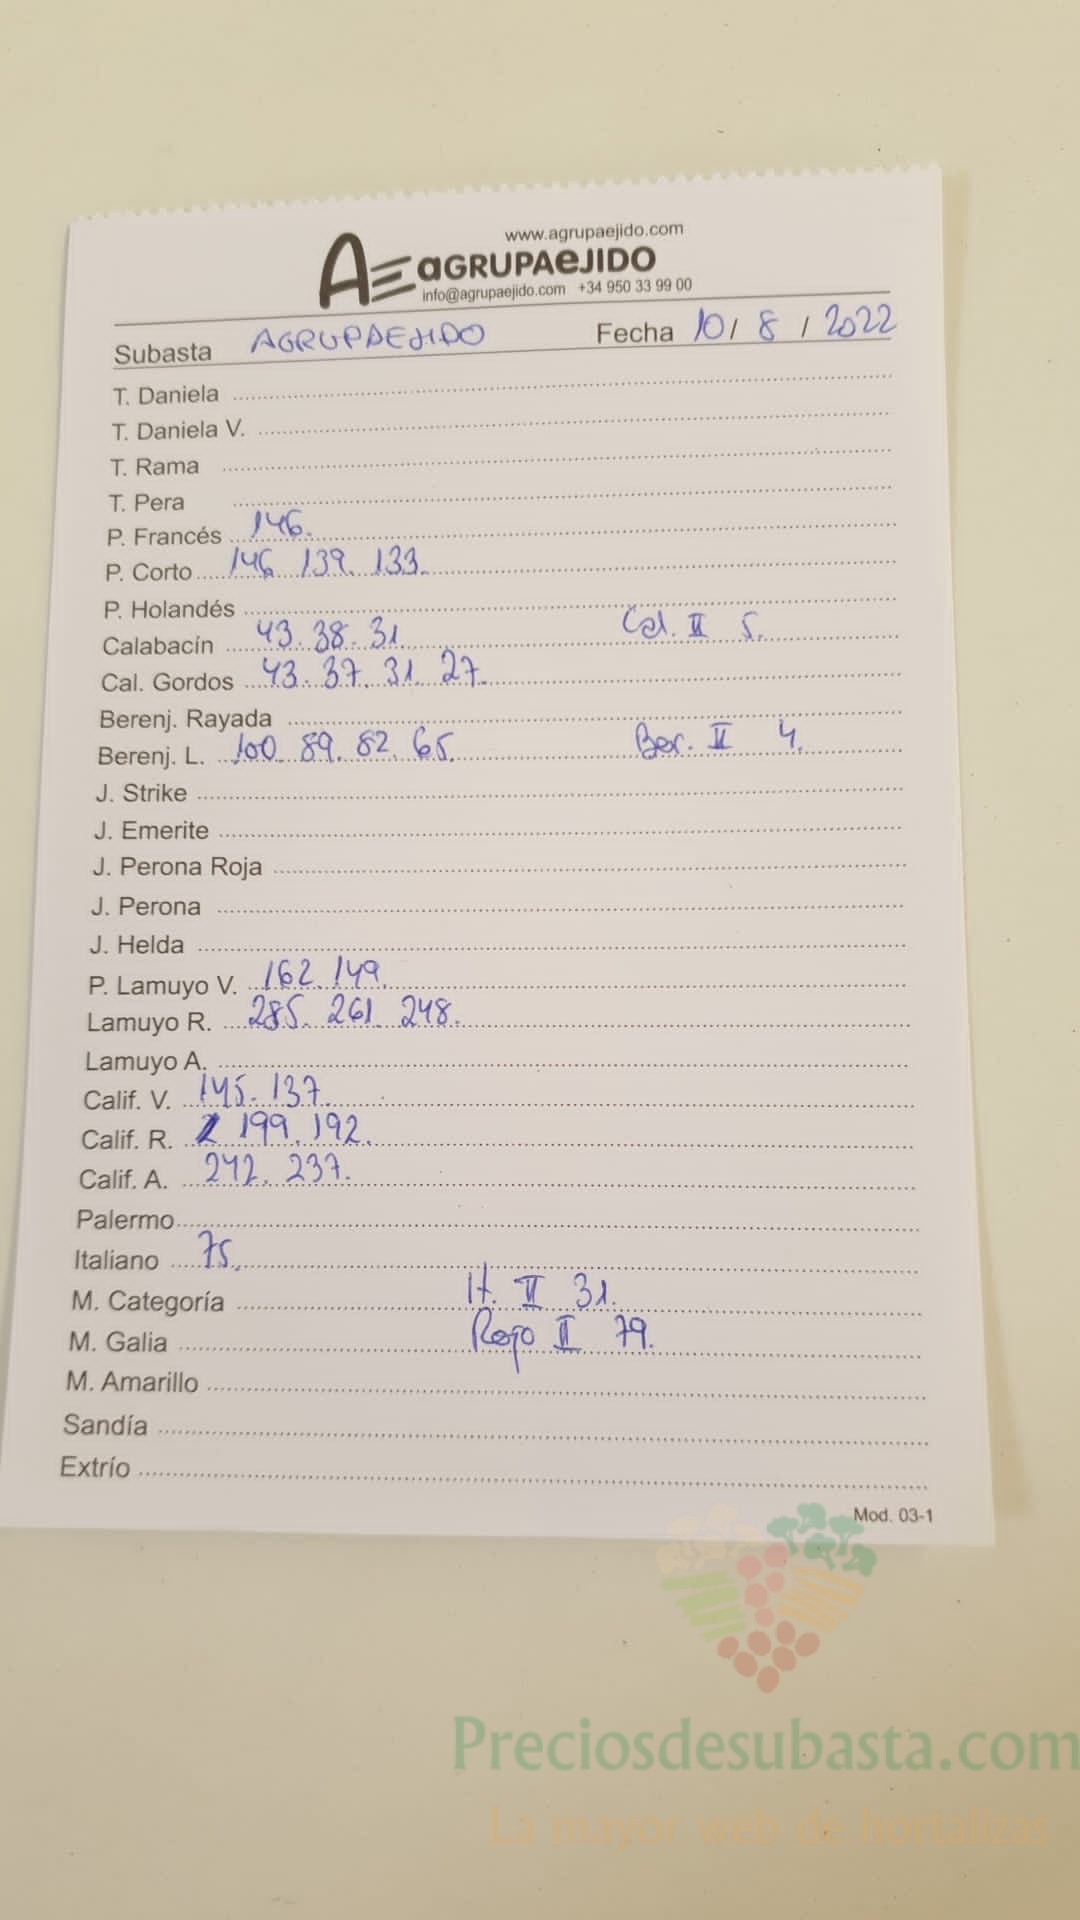 www.agrupaejido.com
AE aGRUPAeJIDO
info@agrupaejido.com +34 950 33 99 00
Subasta AGRUPAEJIDO Fecha 10/ 8 / 2022
T. Daniela
T. Daniela V.
T. Rama
T. Pera
P. Francés 146.
P. Corto 146 139. 133.
P. Holandés
Calabacín 43. 38. 31. Cal. II 5.
Cal. Gordos 43. 37. 31. 27.
Berenj. Rayada
Berenj. L. 100. 89. 82. 65. Ber. II 4.
J. Strike
J. Emerite
J. Perona Roja
J. Perona
J. Helda
P. Lamuyo V. 162. 149.
Lamuyo R. 285. 261. 248.
Lamuyo A.
Calif. V. 145. 137.
Calif. R. 199. 192.
Calif. A. 242. 237.
Palermo
Italiano 75.
M. Categoría It. II 31.
M. Galia Rojo II 79.
M. Amarillo
Sandía
Extrío
Mod. 03-1
Preciosdesubasta.com
La mayor web de hortalizas